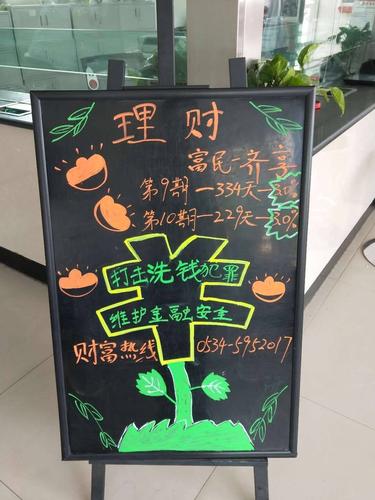 理财
富民-齐享
第9期-334天-3.0%
第10期-229天-3.0%
打击洗钱犯罪
维护金融安全
财富热线 0534-5952017